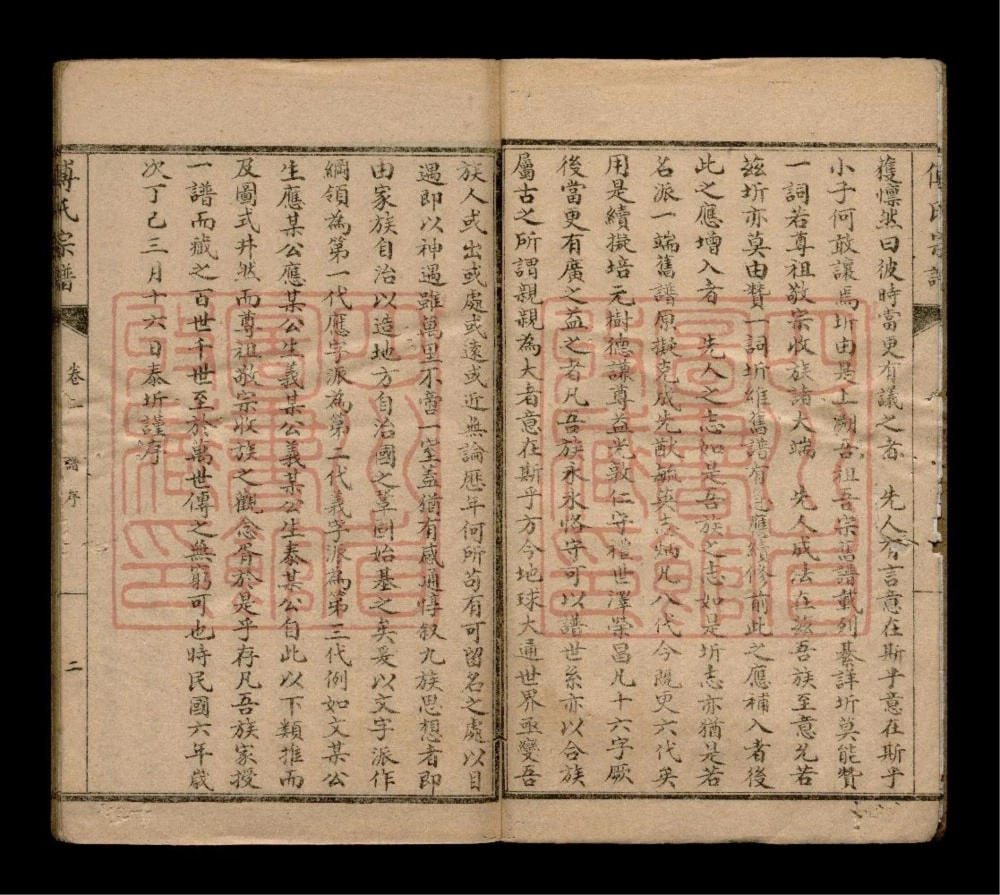 傅氏宗譜
獲懍然曰彼時當更有議之者　先人有言意在斯乎意在斯乎
小子何敢讓焉圻由是上溯吾祖吾宗舊譜載列綦詳圻莫能贊
一詞若尊祖敬宗收族諸大端　先人成法在茲吾族至意允若
茲圻亦莫由贊一詞圻維舊譜有應續修前此之應補入者後
此之應增入者　先人之志如是吾族之志如是圻志亦猶是若
名派一端舊譜原擬克成先猷毓英志炳凡八代今既更六代矣
用是續擬培元樹德謙尊益光敦仁守禮世澤榮昌凡十六字厥
後當更有廣之益之者凡吾族永永恪守可以譜世系亦以合族
屬古之所謂親親為大者意在斯乎方今地球大通世界亟變吾
族人或出或處或遠或近無論歷年何所苟有可留名之處以目
遇即以神遇雖萬里不啻一室蓋猶有感通惇叙九族思想者即
由家族自治以造地方自治國之草創始基之矣爰以文字派作
綱領為第一代應字派為第二代義字派為第三代例如文某公
生應某公應某公生義某公義某公生泰某公自此以下類推而
及圖式井然而尊祖敬宗收族之觀念胥於是乎存凡吾族家授
一譜而藏之百世千世至於萬世傳之無窮可也時民國六年歲
次丁巳三月十六日泰圻謹序
傅氏宗譜
卷
譜序
二